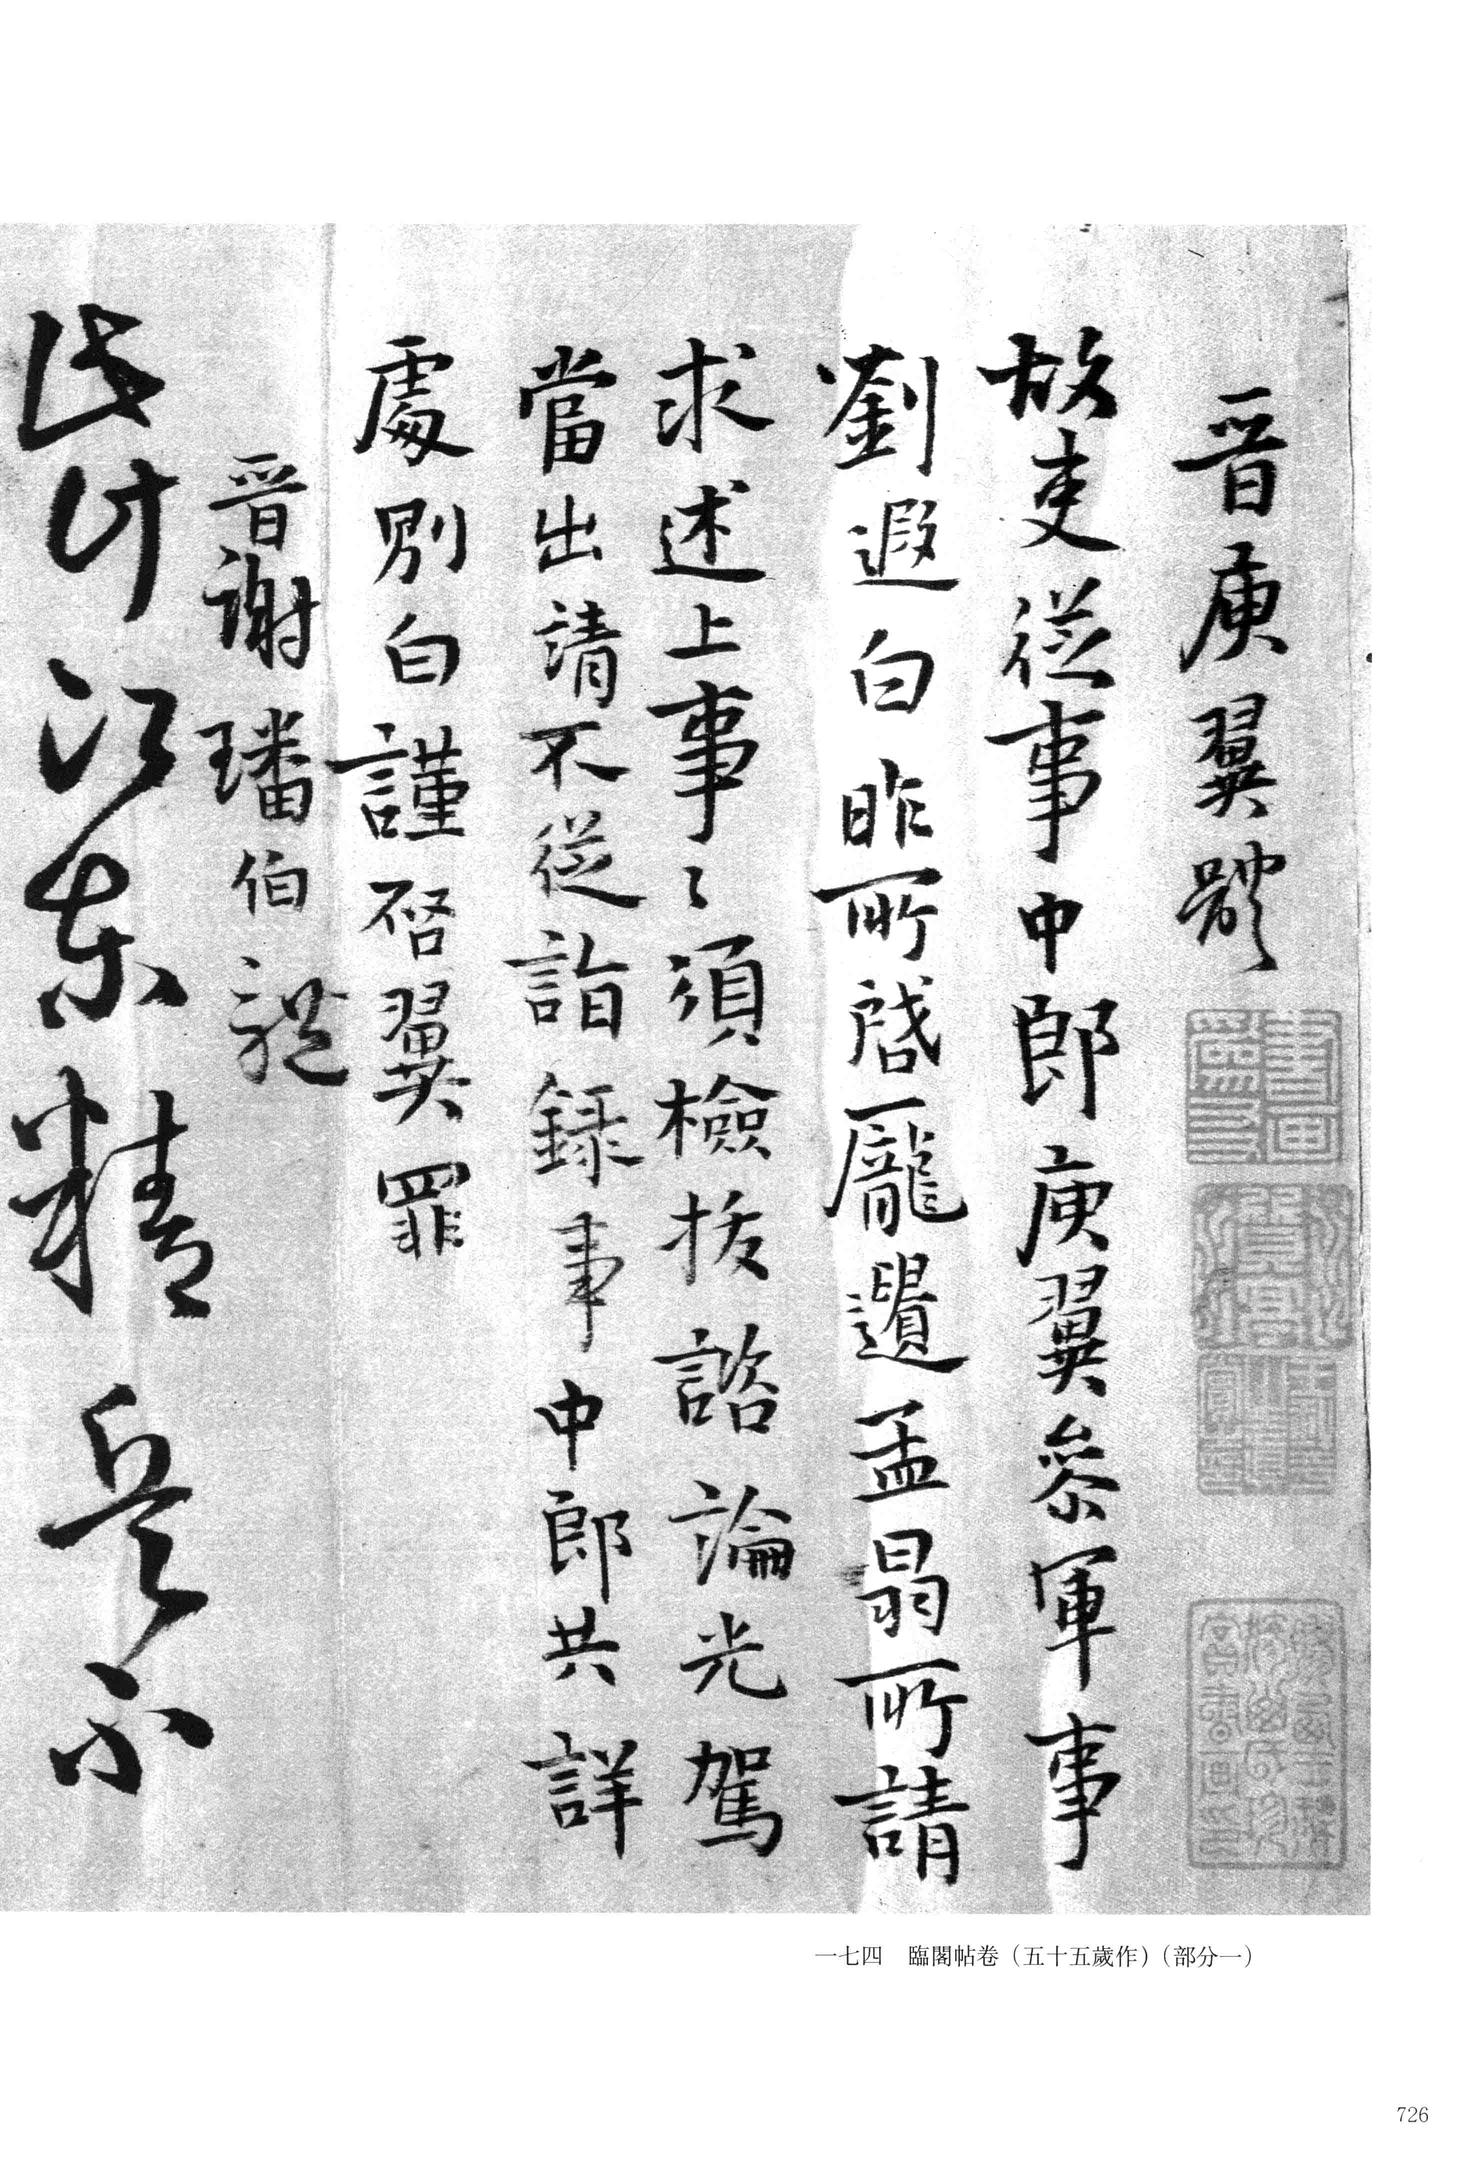 晉庾翼體
故吏從事中郎庾翼參軍事
劉遐白昨所啓龐遺孟曷所請
求述上事〻須檢校諮論光駕
當出請不從詣錄事中郎共詳
處別白謹啓翼罪
晉謝璠伯體
江東精兵不
一七四　臨閣帖卷（五十五歲作）（部分一）
726